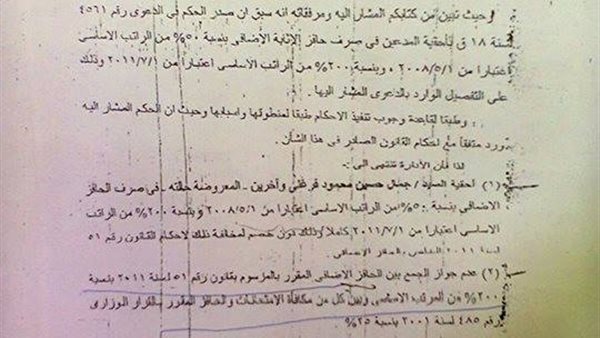 وحيث تبين من كتابكم المشار اليه ومرفقاته انه سبق ان صدر الحكم فى الدعوى رقم ٤٥٦١
لسنة ١٨ ق بأحقية المدعين فى صرف حافز الإثابة الأضافى بنسبة ٥٠% من الراتب الاساسى
اعتبارا من ٢٠٠٨/٥/١ ، وبنسبة ٢٠٠% من الراتب الاساسى اعتبارا من ٢٠١١/٧/١ وذلك
على التفصيل الوارد بالدعرى المشار اليها .
وطبقا لقاعدة وجوب تنفيذ الاحكام طبقا لمنطوقها واسبابها وحيث ان الحكم المشار اليه
ورد متفقا مع احكام القانون الصادر فى هذا الشأن .
لذا فأن الأدارة تنتهى الى :-
(١) أحقية السيد / جمال حسين محمود فرغلى وآخرين - المعروضة حالته - فى صرف الحافز
الاضافى بنسبة ٥٠% من الراتب الاساسى اعتبارا من ٢٠٠٨/٥/١ وبنسبة ٢٠٠% من الراتب
الاساسى اعتبارا من ٢٠١١/٧/١ كاملا وذلك دون خصم لمخالفة ذلك لاحكام القانون رقم ٥١
لسنة ٢٠١١ الخاص بالحافز الاضافى .
(٢) عدم جواز الجمع بين الحافز الأضافى المقرر بالمرسوم بقانون رقم ٥١ لسنة ٢٠١١ بنسبة
٢٠٠% من المرتب الاساسى وبين كل من مكافأة الامتحانات والحافز المقرر بالقرار الوزارى
رقم ٤٨٥ لسنة ٢٠٠١ بنسبة ٢٥%